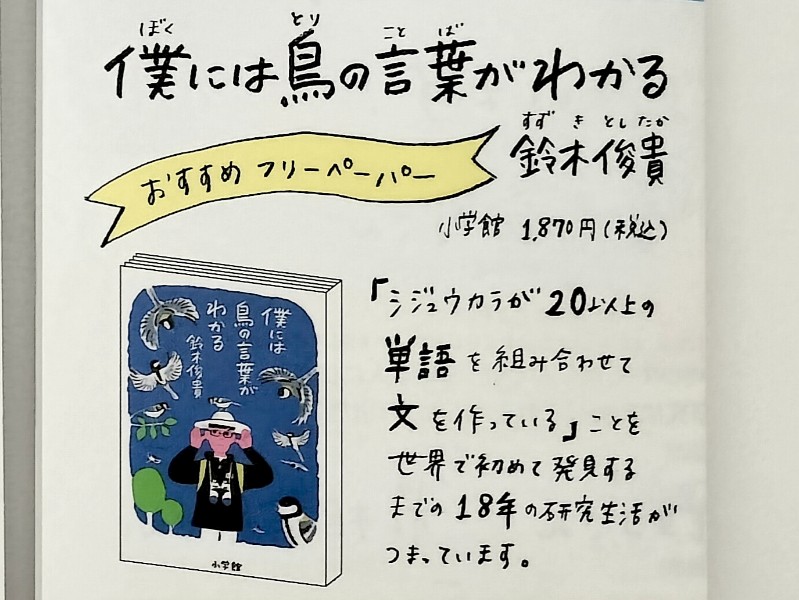 ぼく とり こと ば
僕には鳥の言葉がわかる
すず き とし たか
鈴木俊貴
おすすめ フリーペーパー
小学館 1,870円(税込)
「シジュウカラが20以上の
単語を組み合わせて
文を作っている」ことを
世界で初めて発見する
までの18年の研究生活が
つまっています。
僕には
鳥の言葉が
わかる
鈴木俊貴
小学館